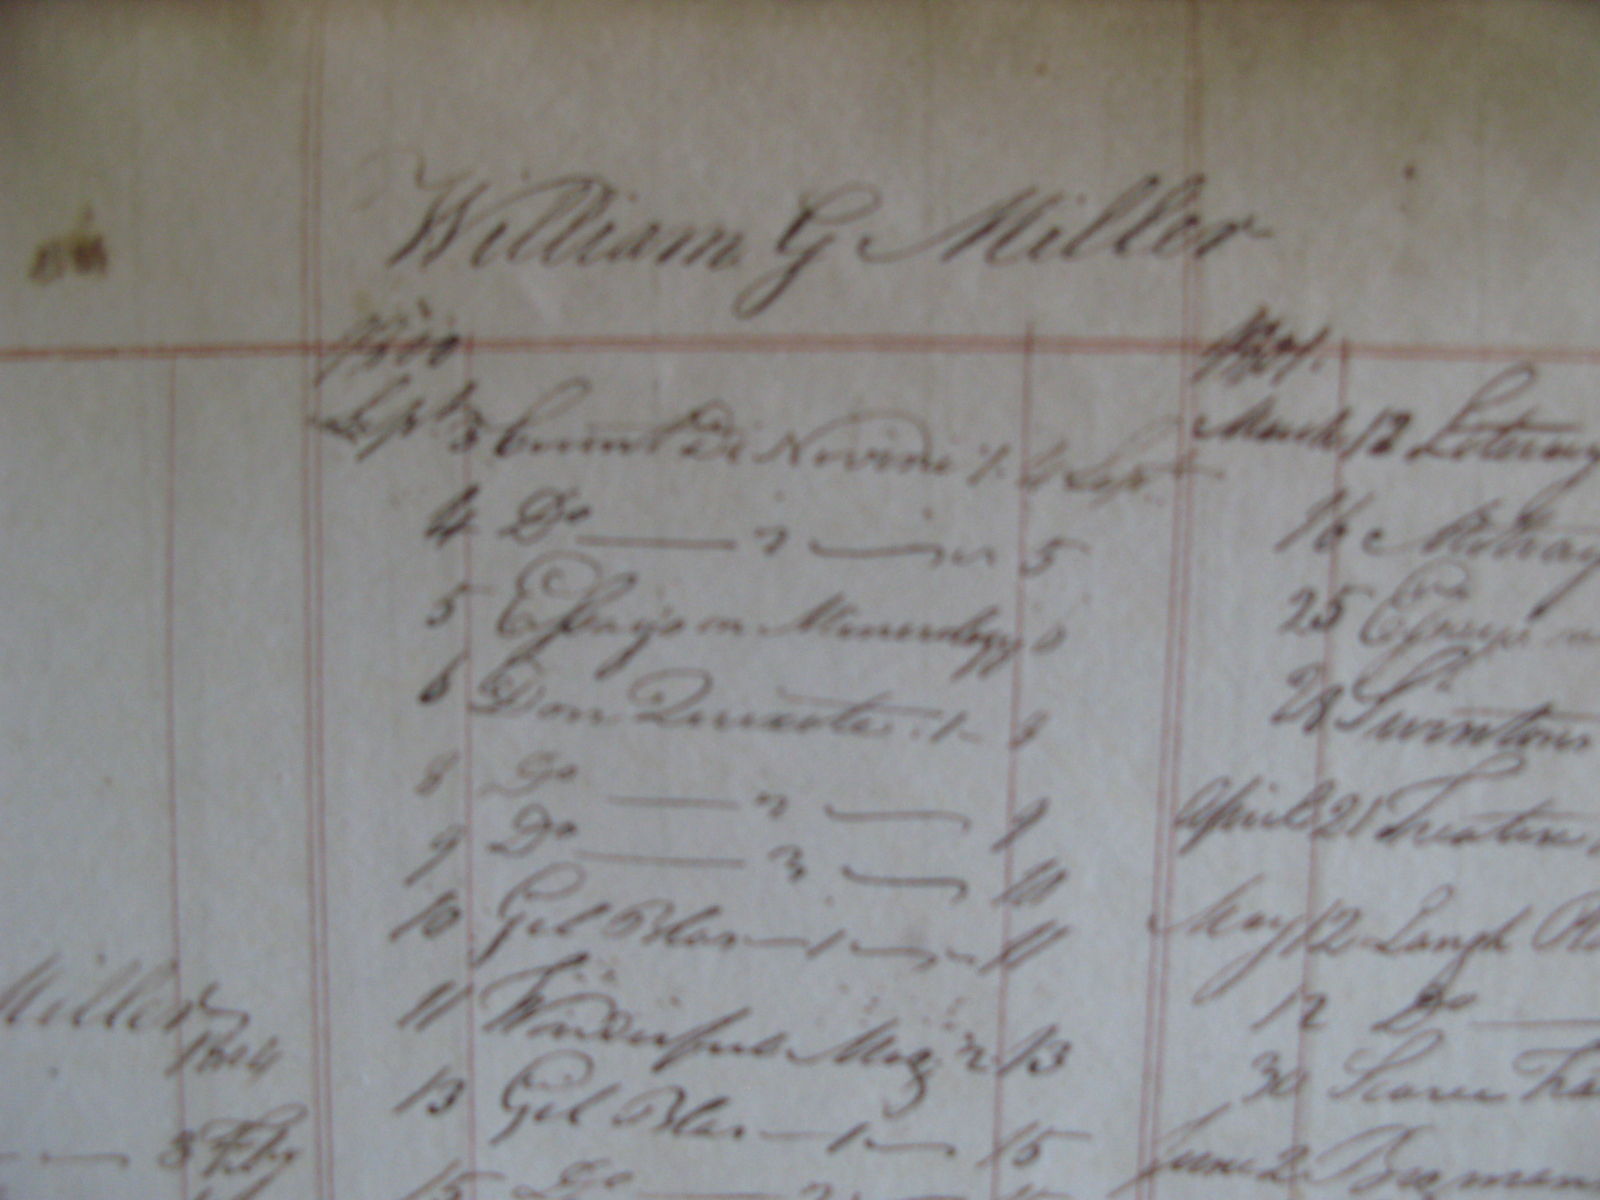 William G Miller
1800
Sept 3 Count De 1. 4 Sept
4 Do — 2 — 5
5 Essays on Minerology 6
6 Don Quixote . 1 - 8
8 Do — 2 — 9
9 Do — 3 — 10
10 Gil Blas — 1 — 11
11 Wonderful Mag 2 13
13 Gil Blas — 1 — 15
15 Do — 2
1801.
March 12
16
25 Essays
28 Swintons
April 21
May 12 Laugh
12 Do —
30
June 2
Miller
1804
— 3 Feby